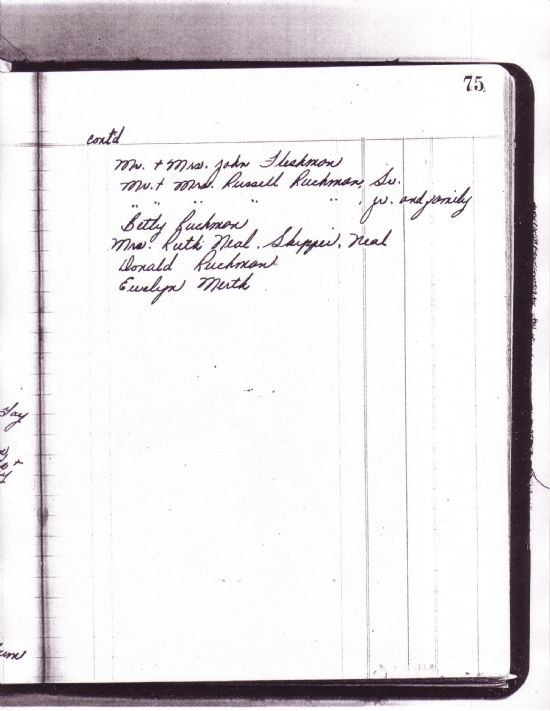 75
cont'd
Mr. + Mrs. John Fleshman
Mr. + Mrs. Russell Ruckman, Sr.
" " " " " , Jr. and family
Betty Ruckman
Mrs. Ruth Neal, Skipper, Neal
Donald Ruckman
Evelyn Merth